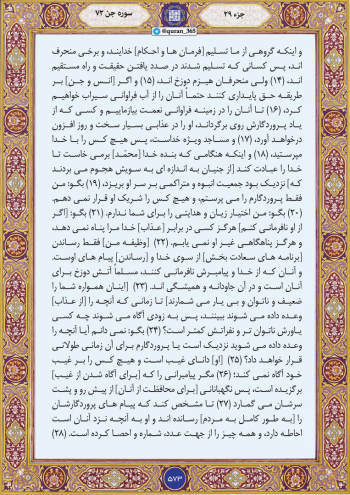 جزء ۲۹
سوره جن ۷۲
@quran_365
و اینکه گروهی از ما تسلیم [فرمان ها و احکام] خدایند، و برخی منحرف
اند، پس کسانی که تسلیم شدند در صدد یافتن حقیقت و راه مستقیم
اند، (۱۴) ولی منحرفان هیزم دوزخ اند، (۱۵) و اگر [انس و جن] بر
طریقه حق پایداری کنند حتماً آنان را از آب فراوانی سیراب خواهیم
کرد، (۱۶) تا آنان را در زمینه فراوانی نعمت بیازماییم و کسی که از
یاد پروردگارش روی برگرداند، او را در عذابی بسیار سخت و روز افزون
درخواهد آورد، (۱۷) و مساجد ویژه خداست، پس هیچ کس را با خدا
مپرستید، (۱۸) و اینکه هنگامی که بنده خدا [محمّد] برمی خاست تا
خدا را عبادت کند [از جنیان به اندازه ای به سویش هجوم می بردند
که] نزدیک بود جمعیت انبوه و متراکمی بر سر او بریزد، (۱۹) بگو: من
فقط پروردگارم را می پرستم، و هیچ کس را شریک او قرار نمی دهم.
(۲۰) بگو: من اختیار زیان و هدایتی را برای شما ندارم. (۲۱) بگو: [اگر
از او نافرمانی کنم] هرگز کسی در برابر [عذاب] خدا مرا پناه نمی دهد،
و هرگز پناهگاهی غیر او نمی یابم. (۲۲) [وظیفه من] فقط رساندن
[برنامه های سعادت بخش] از سوی خدا و [رساندن] پیام های اوست.
و آنان که از خدا و پیامبرش نافرمانی کنند، مسلماً آتش دوزخ برای
آنان است و در آن جاودانه و همیشگی اند. (۲۳) [اینان همواره شما را
ضعیف و ناتوان و بی یار می شمارند] تا زمانی که آنچه را [از عذاب]
وعده داده می شوند ببینند، پس به زودی آگاه می شوند چه کسی
یاورش ناتوان تر و نفراتش کمتر است؟ (۲۴) بگو: نمی دانم آیا آنچه را
وعده داده می شوید نزدیک است یا پروردگارم برای آن زمانی طولانی
قرار خواهد داد؟ (۲۵) [او] دانای غیب است و هیچ کس را بر غیب
خود آگاه نمی کند؛ (۲۶) مگر پیامبرانی را که [برای آگاه شدن از غیب]
برگزیده است، پس نگهبانانی [برای محافظت از آنان] از پیش رو و پشت
سرشان می گمارد (۲۷) تا مشخص کند که پیام های پروردگارشان
را [به طور کامل به مردم] رسانده اند و او به آنچه نزد آنان است
احاطه دارد، و همه چیز را از جهت عدد، شماره و احصا کرده است. (۲۸)
۵۷۳